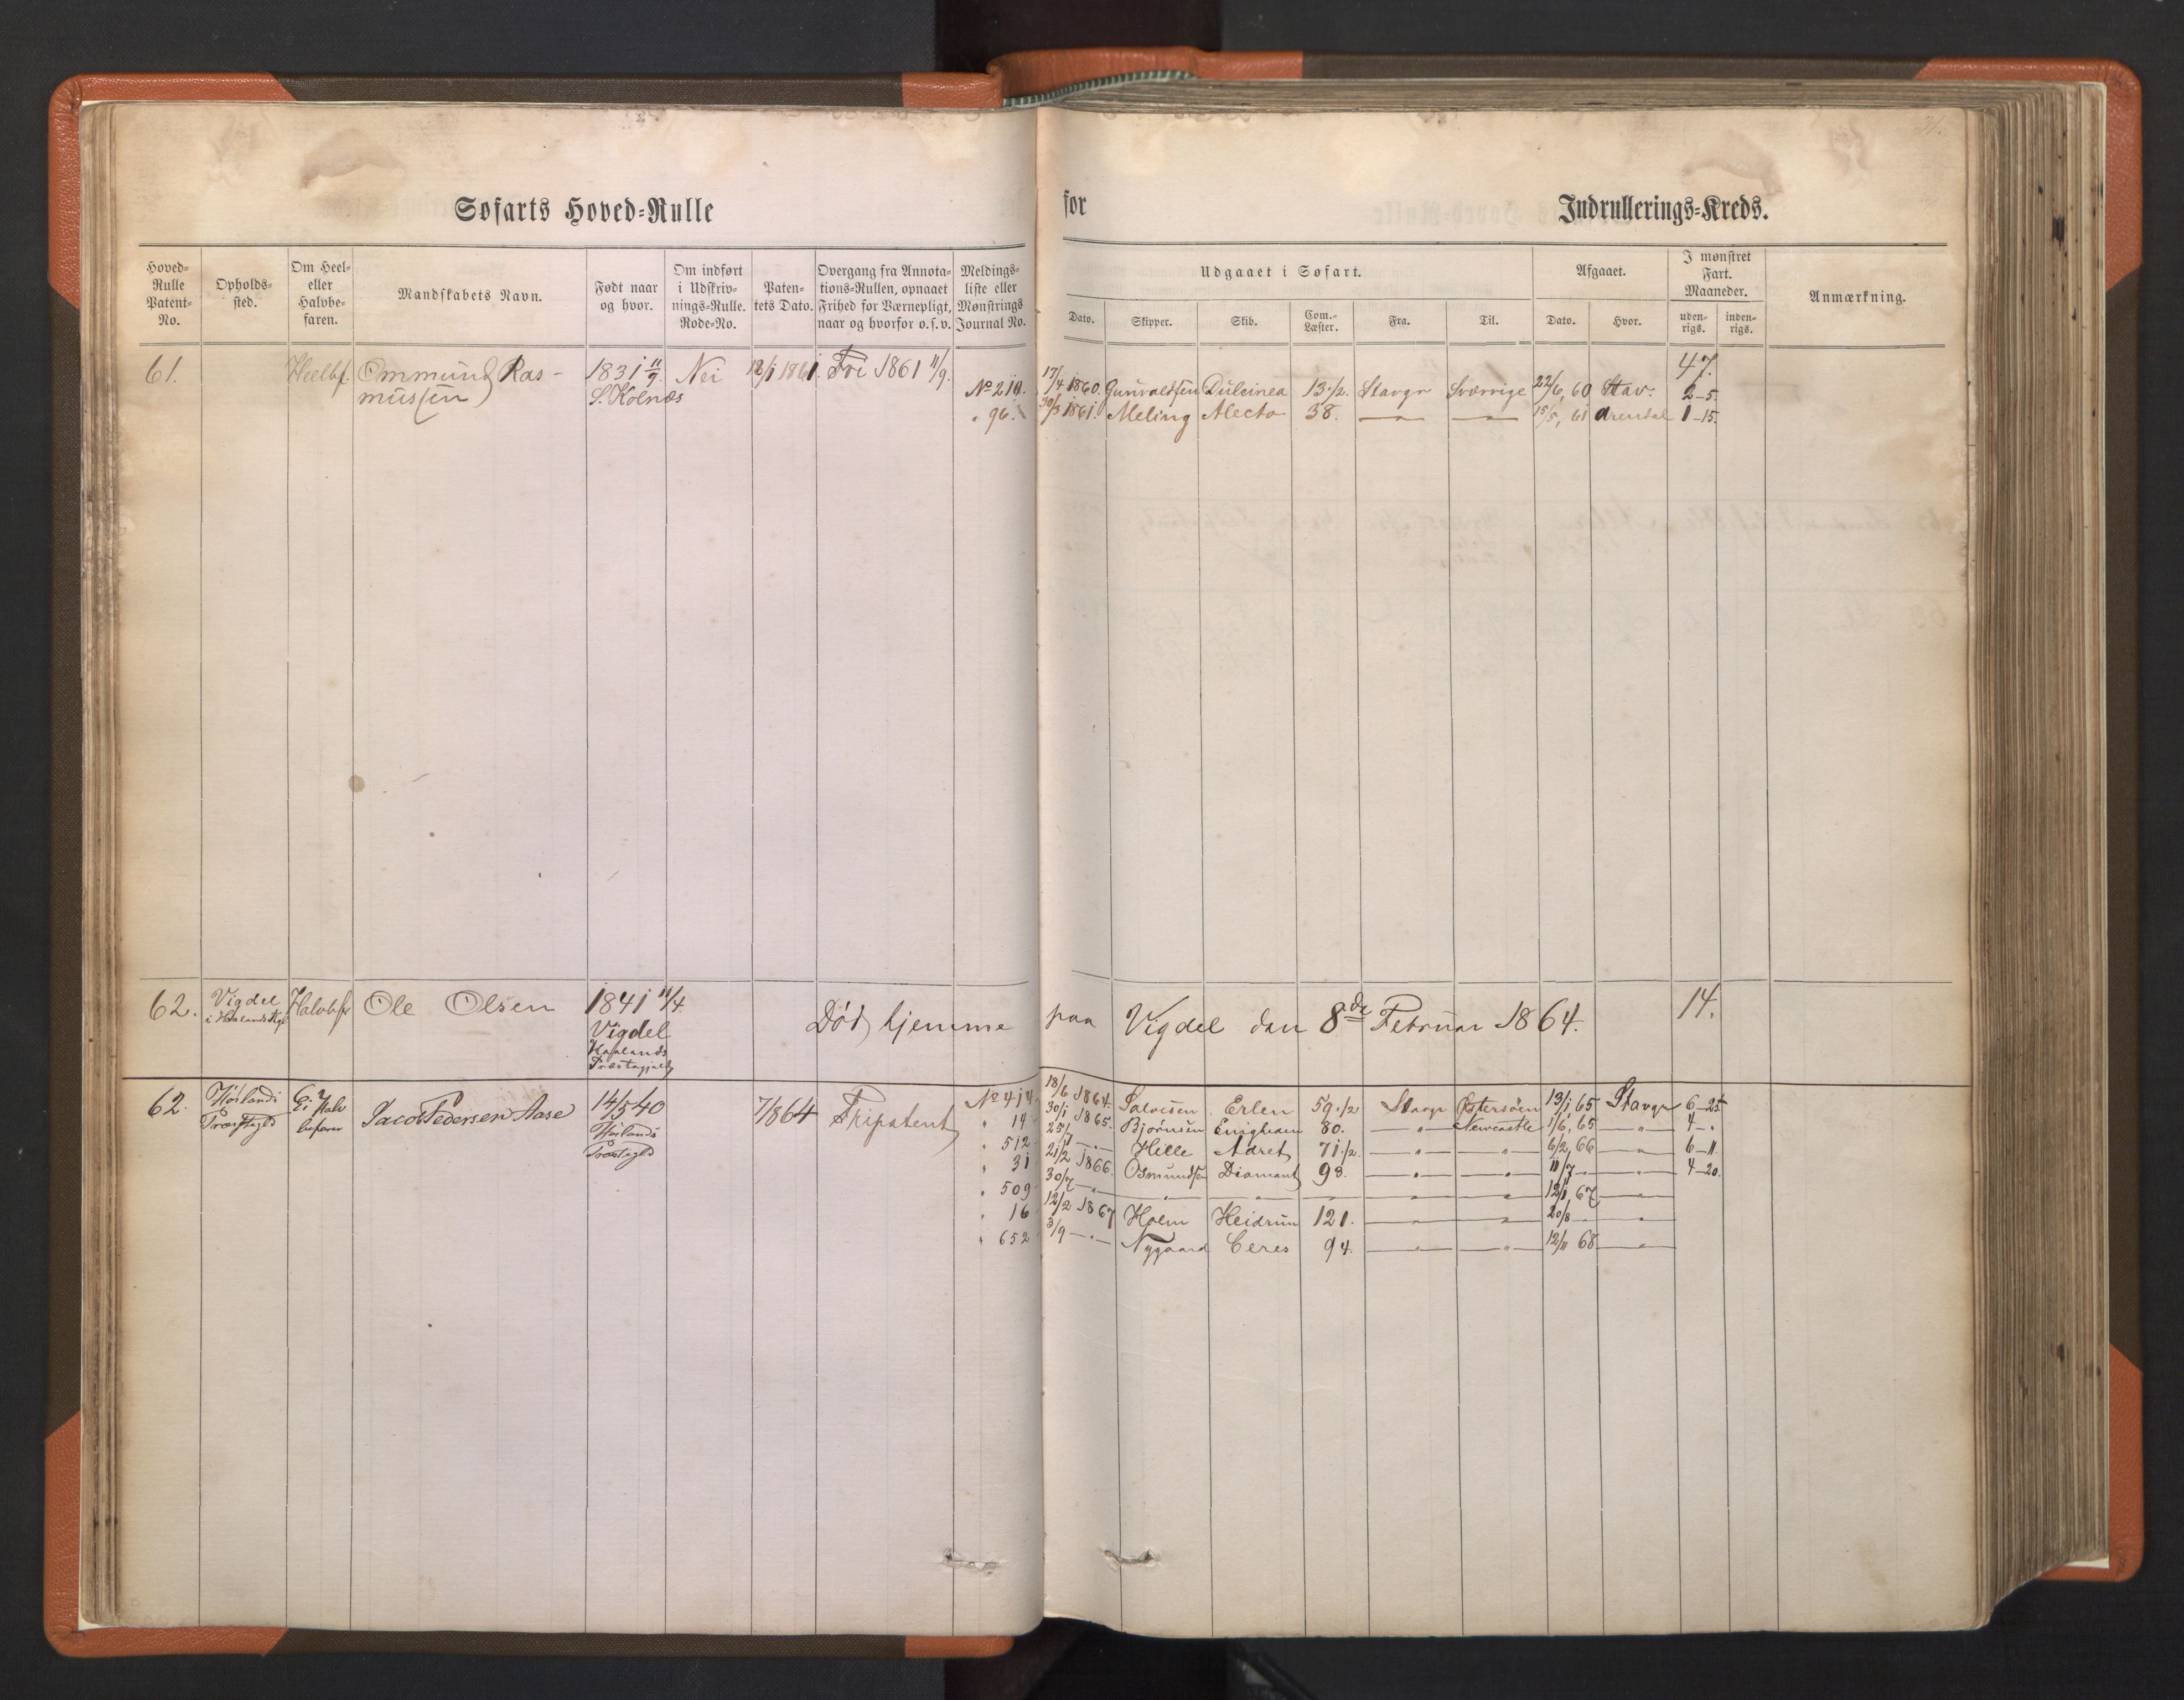 31.
Søfarts Hoved-Rulle for Indrullerings-Kreds.
Hoved-Rulle Patent-No.
Opholds-sted.
Om Heel- eller Halvbe-faren.
Mandskabets Navn.
Født naar og hvor.
Om indført i Udskriv-nings-Rulle. Rode-No.
Paten-tets Dato.
Overgang fra Annota-tions-Rullen, opnaaet Frihed for Værnepligt, naar og hvorfor o.s.v.
Meldings-liste eller Mønstrings Journal No.
Udgaaet i Søfart.
Dato. Skipper. Skib. Com.-Læster. Fra. Til.
Afgaaet.
Dato. Hvor.
I mønstret Fart. Maaneder.
uden-rigs. inden-rigs.
Anmærkning.
61. Heelbf. Ommund Ras- 1831 11/9 Nei 12/1 1861. Fri 1861 11/9. 47.
mussen S. Kolnæs No 210. 17/4 1860. Gunvaldsen Dulcinea 13 1/2. Stavgr Sverrige 22/6, 60 Stav. 2-5.
" 96. 30/3 1861. Meling Alecto 38. " " 15/5, 61 Arendal 1-15.
62. Vigdel Halvbf Ole Olsen 1841 11/4 14.
i Haalands Pgf
Død hjemme paa Vigdel den 8de Februar 1864.
Vigdel
Haalands
Præstegjeld
62. Høilands Ei Halv Jacob Pedersen Aase 14/5 40 7/864 Fripatent No 414 18/6 1864. Salvesen Erlen 59 1/2 Stavgr Østersøen 13/1 65 Stavgr 6-25.
Præstegld befaren Høilands " 14 30/1 1865. Bjørnsen Enigheden 80. " Newcastle 1/6, 65 " 4-"
Præstegld " 512 25/7 " Hille Adret 71 1/2. " " 6/2, 66 " 6-11
" 31 21/2 1866. Osmundsen Diamant 93. " " 11/7 " " 4-20.
" 509 30/7 " " " " " 12/1, 67 "
" 16 12/2 1867 Holm Heidrun 121. " " 20/8 " "
" 652 3/9 " Nygaard Ceres 94. " " 12/11 68 "